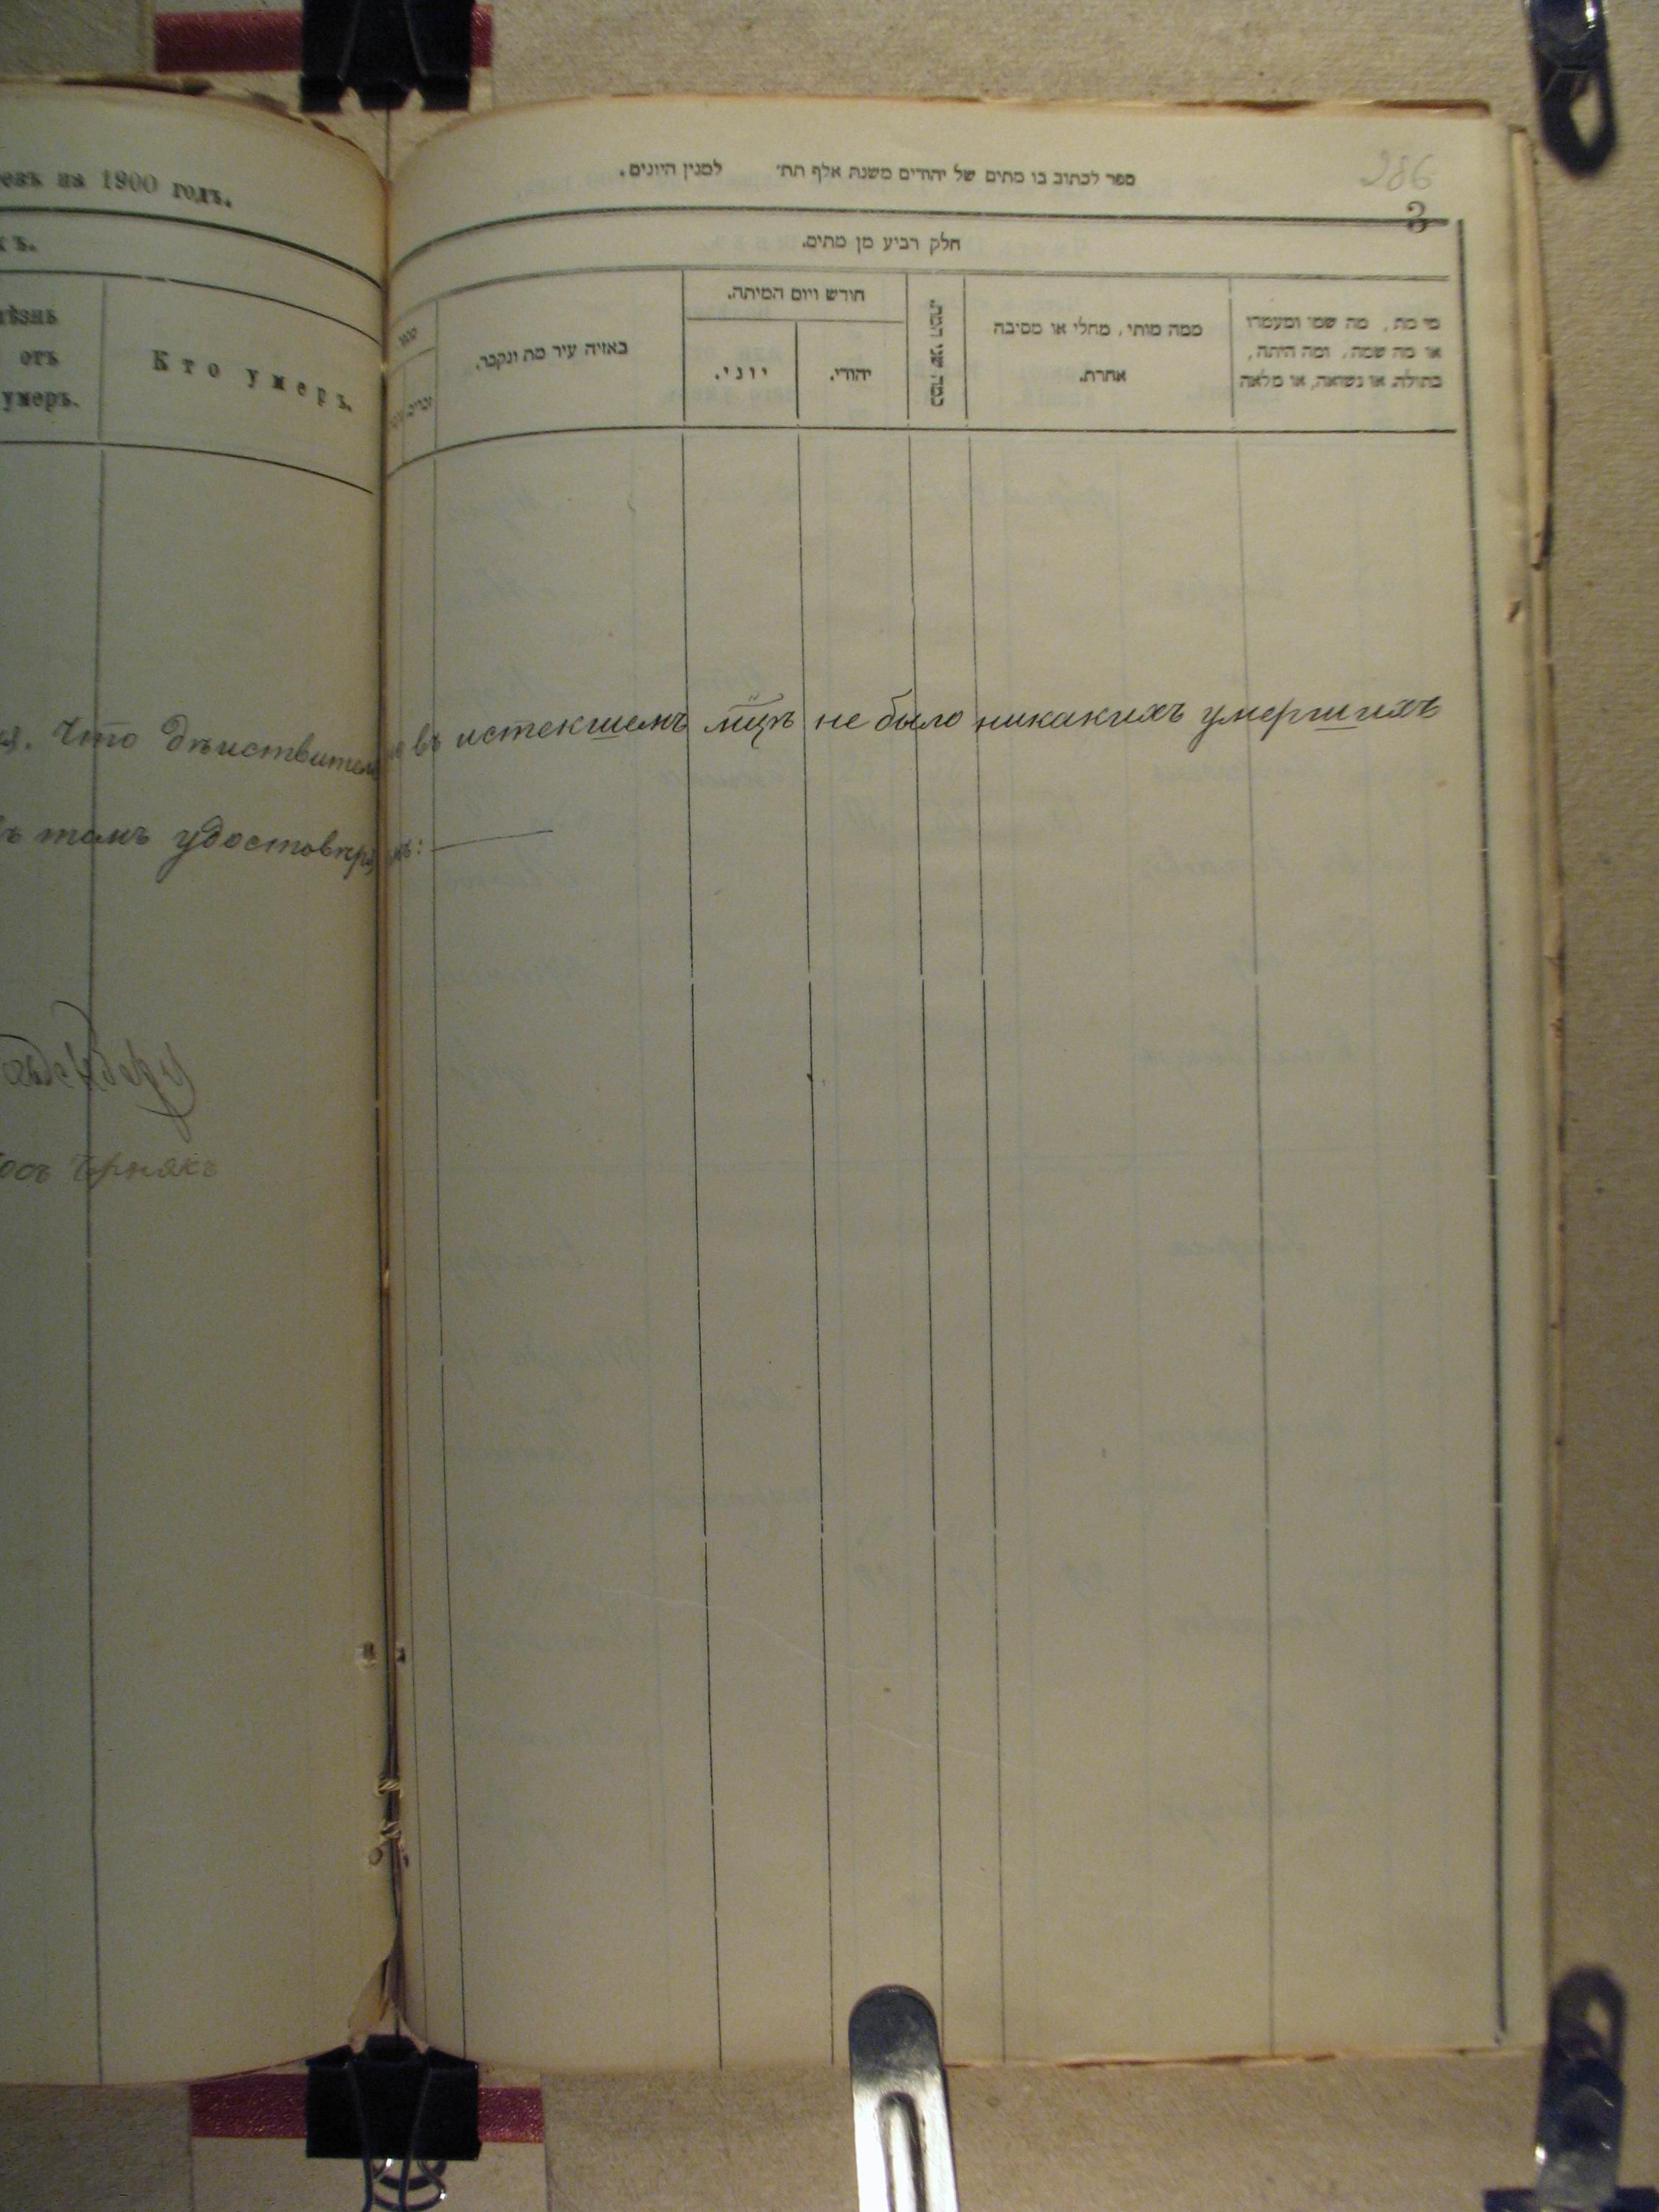 евъ на 1900 годъ.
ѣзнь
отъ
умеръ.
Кто умеръ.
286
3
ספר לכתוב בו מתים של יהודים משנת אלף תת׳ למנין היונים.
חלק רביע מן מתים.
מי מת, מה שמו ומעמדו
או מה שמה, ומה היתה,
בתולה או נשואה, או מלאה
ממה מותי, מחלי או מסיבה
אחרת.
כמה שני המת.
חודש ויום המיתה.
יהודי.
יוני.
באזיה עיר מת ונקבר.
Что дѣйствительно въ истекшемъ мцѣ не было никакихъ умершихъ
томъ удостовѣряемъ:
Чернякъ